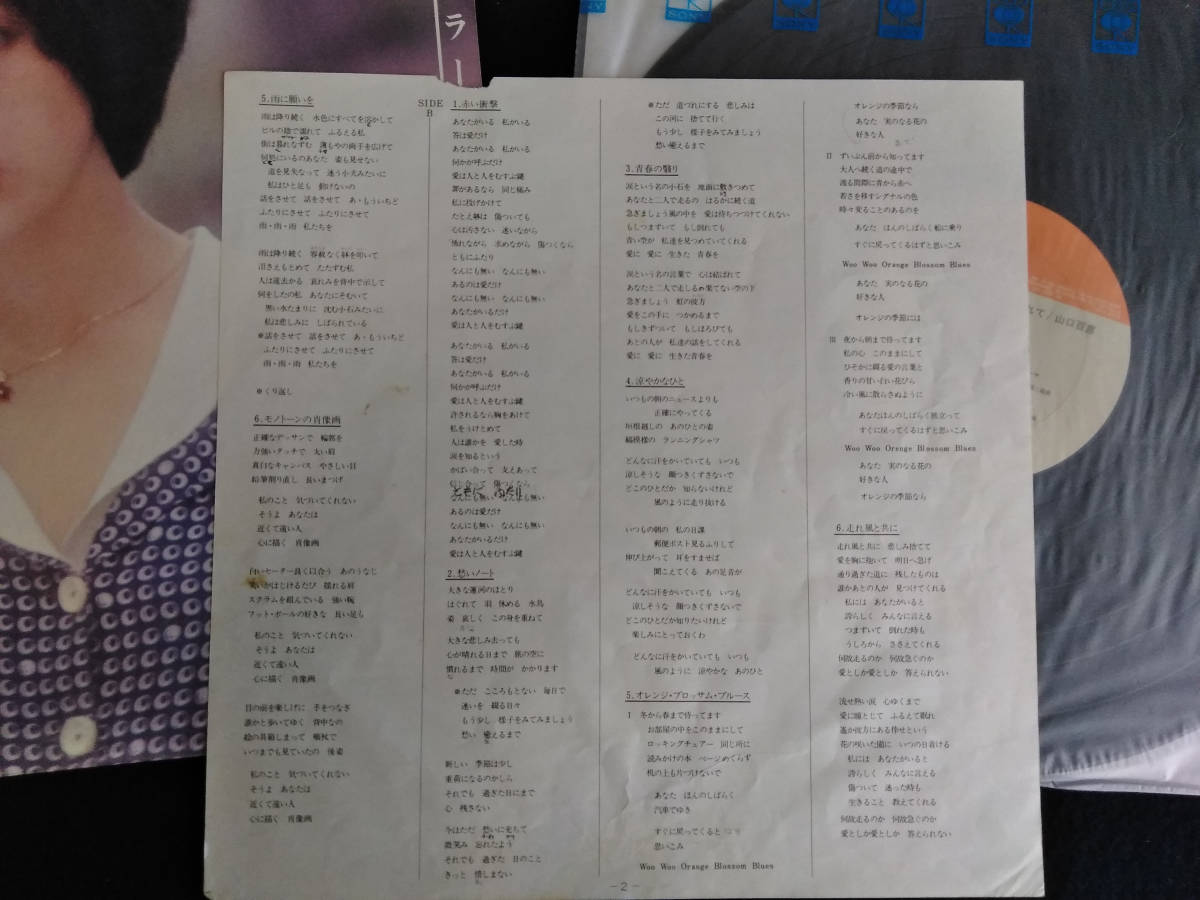 5.雨に願いを
雨は降り続く 水色にすべてを溶かして
ビルの陰で濡れて ふるえる私
街は暮れなずむ 薄もやの両手を広げて
何処にいるのあなた 姿も見せない
道を見失なって 迷う小犬みたいに
私はひと足も 動けないの
話をさせて 話をさせて あ・もういちど
ふたりにさせて ふたりにさせて
雨・雨・雨 私たちを
雨は降り続く 容赦なく躰を叩いて
泪さえもとめて たたずむ私
人は過去かる 哀れみを背中で示して
何をしたの私 あなたにそむいて
黒い水たまりに 沈む小石みたいに
私は悲しみに しばられている
※話をさせて 話をさせて あ・もういちど
ふたりにさせて ふたりにさせて
雨・雨・雨 私たちを
※くり返し
6.モノトーンの肖像画
正確なデッサンで 輪郭を
力強いタッチで 太い眉
真白なキャンバス やさしい目
鉛筆削り直し 長いまつげ
私のこと 気づいてくれない
そうよ あなたは
近くて遠い人
心に描く 肖像画
白いセーター良く似合う あのうなじ
笑いがはじけるたび 揺れる肩
スクラムを組んでいる 強い腕
フット・ボールの好きな 長い足も
私のこと 気づいてくれない
そうよ あなたは
近くて遠い人
心に描く 肖像画
目の前を楽しげに 手をつなぎ
誰かと歩いてゆく 背中なの
絵の具箱しまって 頬杖で
いつまでも見ていたの 後姿
私のこと 気づいてくれない
そうよ あなたは
近くて遠い人
心に描く 肖像画
SIDE
B
1.赤い衝撃
あなたがいる 私がいる
答は愛だけ
あなたがいる 私がいる
何かが呼ぶだけ
愛は人と人をむすぶ鍵
罪があるなら 同じ痛み
私に投げかけて
たとえ躰は 傷ついても
心は汚さない 迷いながら
怖れながら 求めながら 傷つくなら
ともにふたり
なんにも無い なんにも無い
あるのは愛だけ
なんにも無い なんにも無い
あなたがいるだけ
愛は人と人をむすぶ鍵
あなたがいる 私がいる
答は愛だけ
あなたがいる 私がいる
何かが呼ぶだけ
愛は人と人をむすぶ鍵
許されるなら胸をあけて
私をうけとめて
人は誰かを 愛した時
涙を知るという
かばい合って 支えあって
信じ合って 傷つくなら
ともに ふたり
なんにも無い なんにも無い
あるのは愛だけ
なんにも無い なんにも無い
あなたがいるだけ
愛は人と人をむすぶ鍵
2.愁いノート
大きな運河のほとり
はぐれて 羽 休める 水鳥
姿 哀しく この身を重ねて
大きな悲しみ去っても
心が晴れる日まで 旅の空に
慣れるまで 時間が かかります
※ただ こころもとない 毎日で
迷いを 綴る日々
もう少し 様子をみてみましょう
愁い 癒えるまで
新しい 季節は少し
重荷になるのかしら
それでも 過ぎた日にまで
心 残さない
今はただ 愁いに充ちて
微笑み 忘れたよう
それでも 過ぎた 日のこと
きっと 惜しまない
※ただ 道づれにする 悲しみは
この河に 捨てて行く
もう少し 様子をみてみましょう
愁い癒えるまで
3.青春の翳り
涙という名の小石を 地面に敷きつめて
あなたと二人で走るの はるかに続く道
急ぎましょう風の中を 愛は待ちつづけてくれない
もしつまずいて もし倒れても
青い空が 私達を見つめていてくれる
愛に 愛に 生きた 青春を
涙という名の言葉で 心は結ばれて
あなたと二人で走しるの果てない空の下
急ぎましょう 虹の彼方
愛をこの手に つかめるまで
もしきずついて もしほろびても
あとの人が 私達の話をしてくれる
愛に 愛に 生きた青春を
4.涼やかなひと
いつもの朝のニュースよりも
正確にやってくる
垣根越しの あのひとの姿
縞模様の ランニングシャツ
どんなに汗をかいていても いつも
涼しそうな 顔つきくずさないで
どこのひとだか 知らないけれど
風のように走り抜ける
いつもの朝の 私の日課
郵便ポスト見るふりして
伸び上がって 耳をすませば
聞こえてくる あの足音が
どんなに汗をかいていても いつも
涼しそうな 顔つきくずさないで
どこのひとだか知りたいけれど
楽しみにとっておくわ
どんなに汗をかいていても いつも
風のように 涼やかな あのひと
5.オレンジ・ブロッサム・ブルース
I 冬から春まで待ってます
お部屋の中をこのままにして
ロッキングチェアー 同じ所に
読みかけの本 ページめくらず
机の上も片づけないで
あなた ほんのしばらく
汽車でゆき
すぐに戻ってくると
思いこみ
Woo Woo Orange Blossom Blues
オレンジの季節なら
あなた 実のなる花の
好きな人
II ずいぶん前から知ってます
大人へ続く道の途中で
渡る間際に青から赤へ
若さを移すシグナルの色
時々変ることのあるのを
あなた ほんのしばらく船に乗り
すぐに戻ってくるはずと思いこみ
Woo Woo Orange Blossom Blues
あなた 実のなる花の
好きな人
オレンジの季節には
III 夜から朝まで待ってます
私の心 このままにして
ひそかに綴る愛の言葉と
香りの甘い白い花びら
冷い風に散らさぬように
あなたはほんのしばらく旅立って
すぐに戻ってくるはずと思いこみ
Woo Woo Orange Blossom Blues
あなた 実のなる花の
好きな人
オレンジの季節なら
6.走れ風と共に
走れ風と共に 悲しみ捨てて
愛を胸に抱いて 明日へ急げ
通り過ぎた道に 残したものは
誰かあとの人が 見つけてくれる
私には あなたがいると
誇らしく みんなに言える
つまずいて 倒れた時も
うしろから ささえてくれる
何故走るのか 何故急ぐのか
愛としか愛としか 答えられない
流せ熱い涙 心ゆくまで
愛に瞳とじて ふるえて眠れ
遥か彼方にある倖せという
花の咲いた園に いつの日着ける
私には あなたがいると
誇らしく みんなに言える
傷ついて 迷った時も
生きること 教えてくれる
何故走るのか 何故急ぐのか
愛としか愛としか 答えられない
－2－
ラー
SONY
SONY
SONY